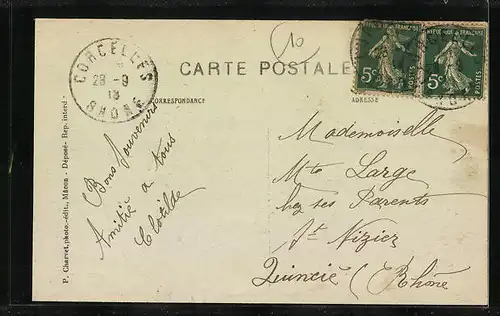 10
CARTE POSTALE
CORRESPONDANCE
ADRESSE
CORCELLES
28 -9
13
RHONE
REPUBLIQUE FRANCAISE
5c
POSTES
REPUBLIQUE FRANCAISE
5c
POSTES
Bons Souvenirs
Amitié a tous
Clotilde
Mademoiselle
Mte Large
chez ses Parents
St Nizier
Quincié (Rhône
P. Charvet, photo.-édit., Mâcon - Déposé- Rep. interd-